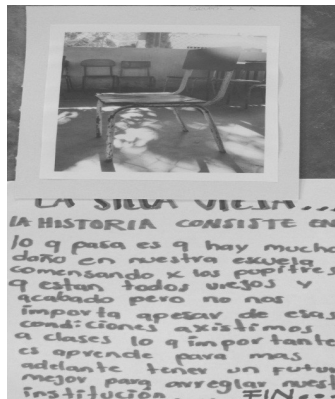 LA SILLA VIEJA...
LA HISTORIA CONSISTE EN
lo q pasa es q hay mucho
daño en nuestra escuela
comensando x las pupitres
q estan todos viejos y
acabado pero no nos
importa apesar de esas
condiciones axistimos
a clases lo q importante
es aprende para mas
adelante tener un futur
mejor para arreglar nuest
institucion FIN...